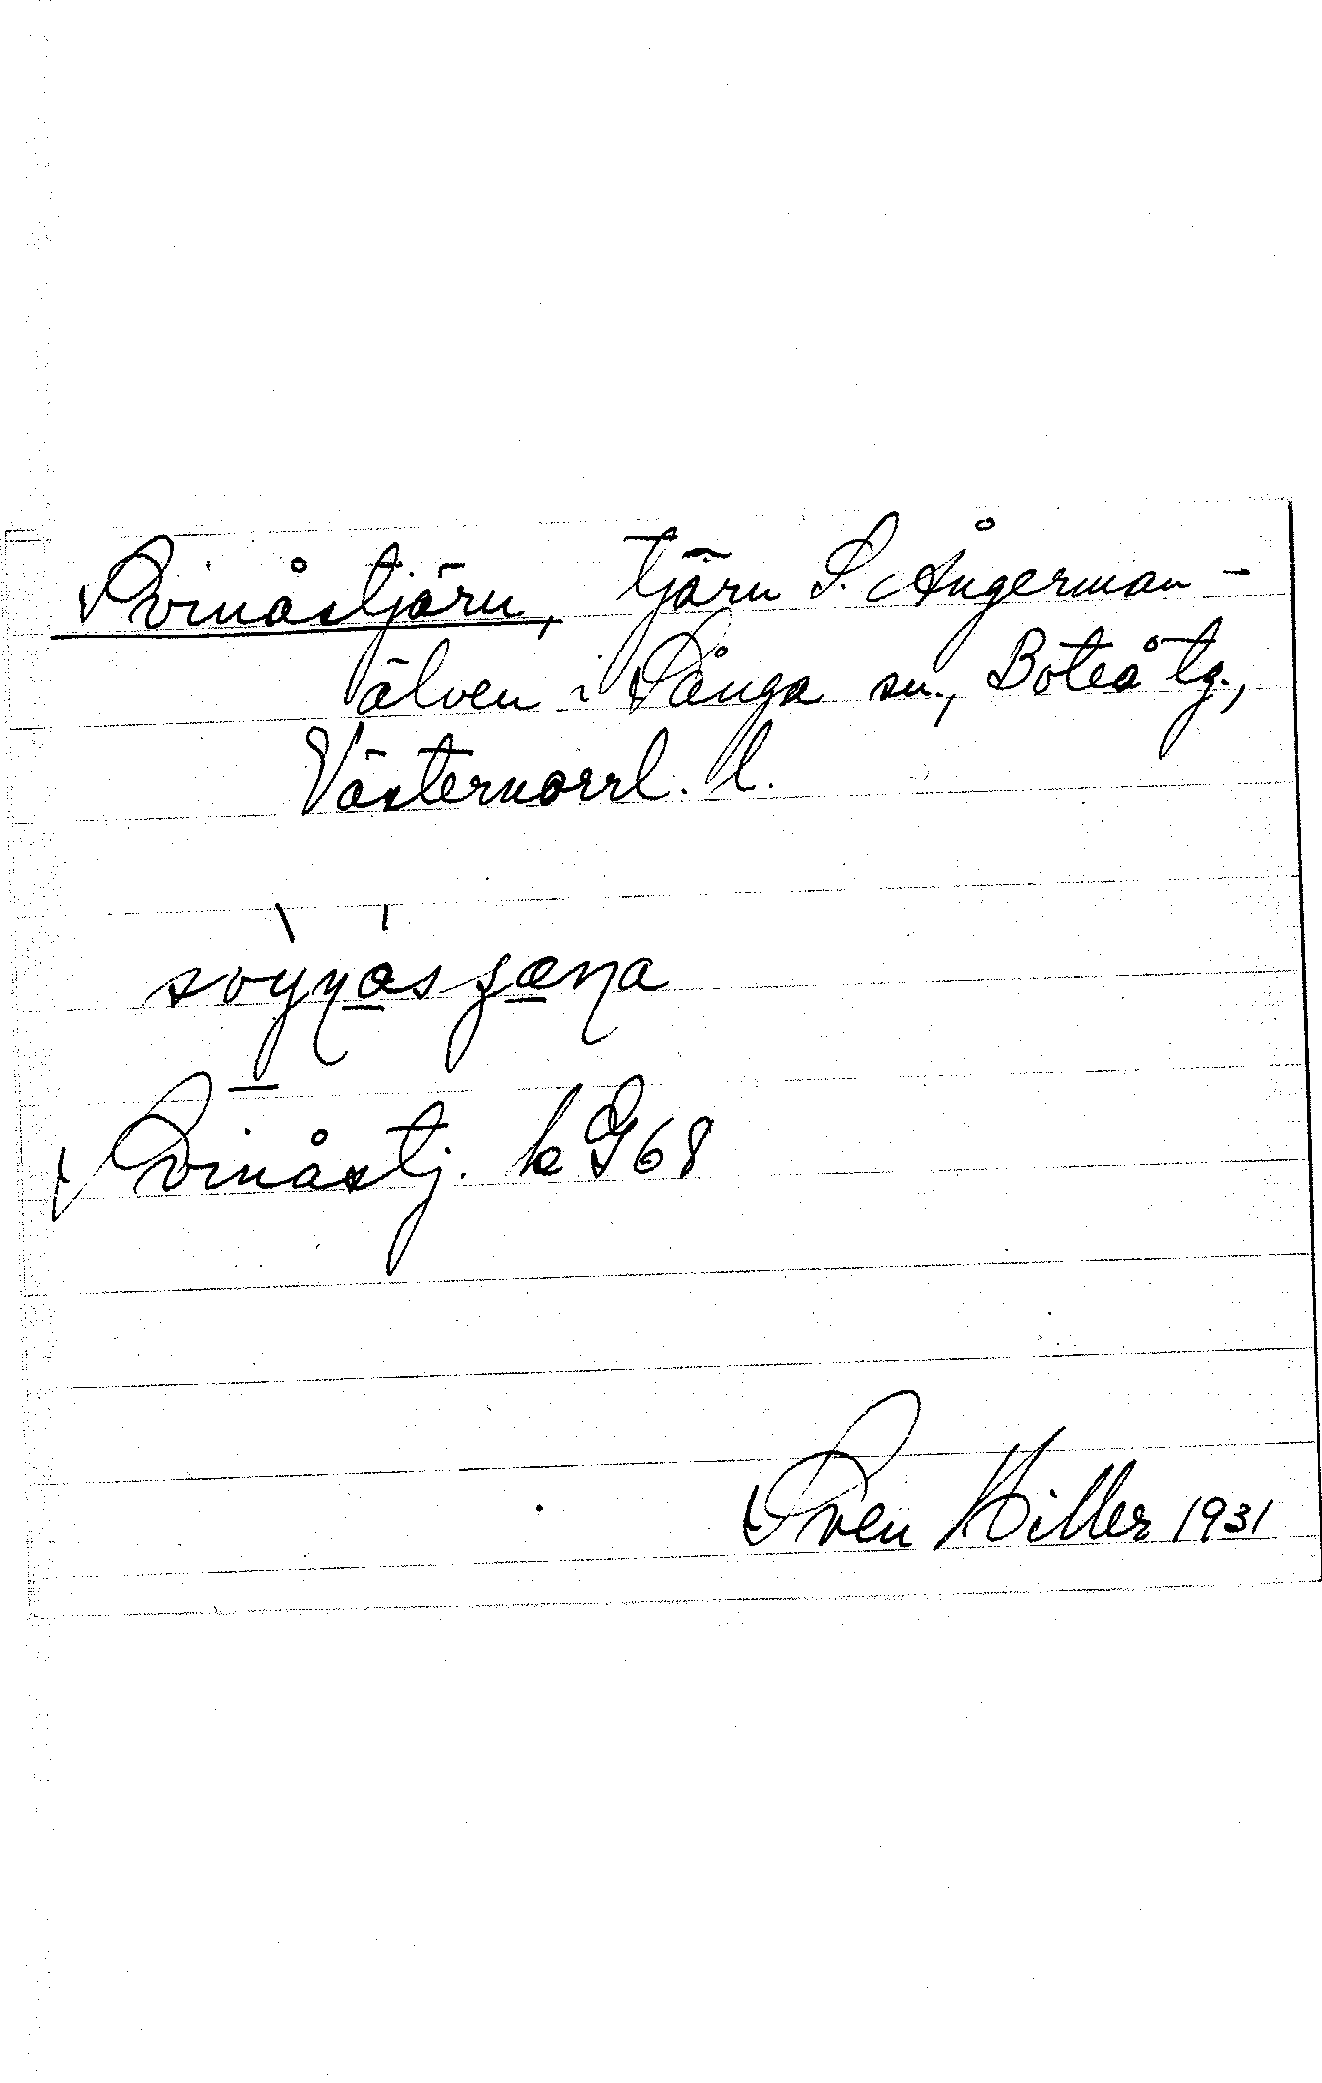 Svinåstjärn, tjärn S. Ångerman-
älven i Sånga sn., Boteå tg.,
Västernorrl. l.
Svinåstj. k G68
Sven Hiller 1931